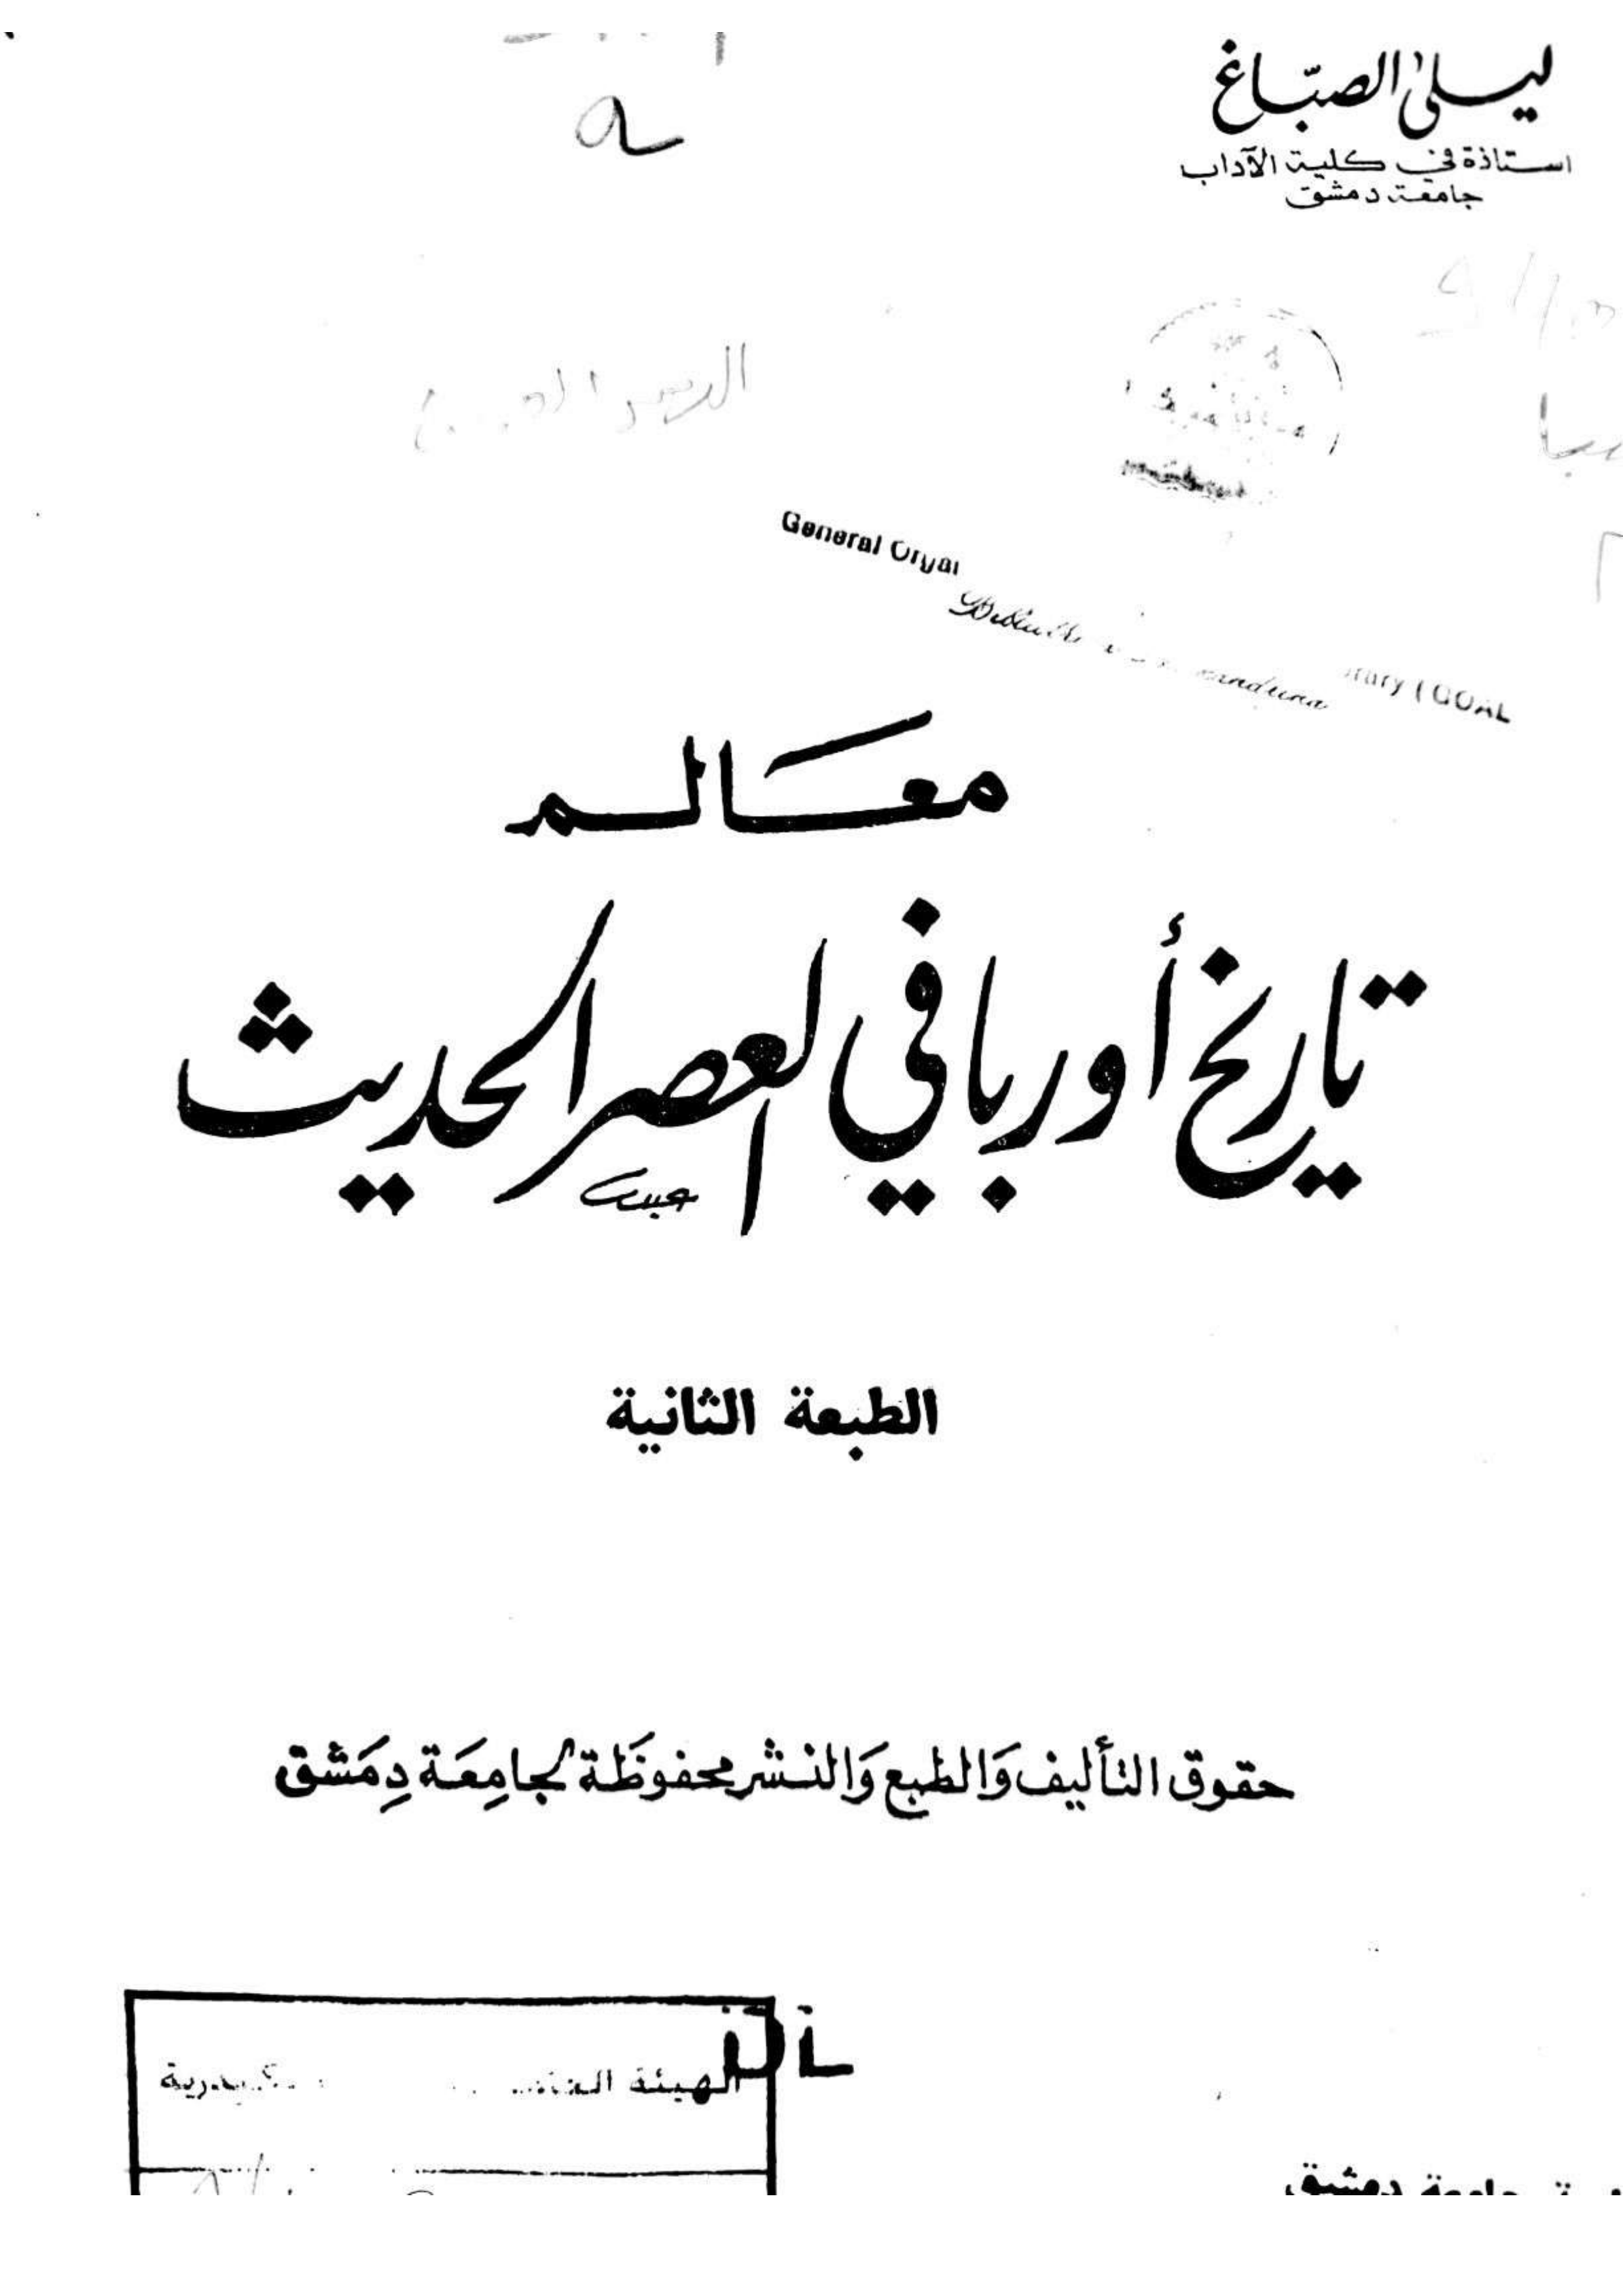 ليلى الصبّاغ
استاذة في كلية الآداب
جامعة دمشق
General
معَالم
تاريخ أوربا في العصر الحديث
الطبعة الثانية
حقوق التأليف وَالطبع وَالنشر محفوظَة لجامِعَة دِمَشق
الهيئة
جامعة دمشق